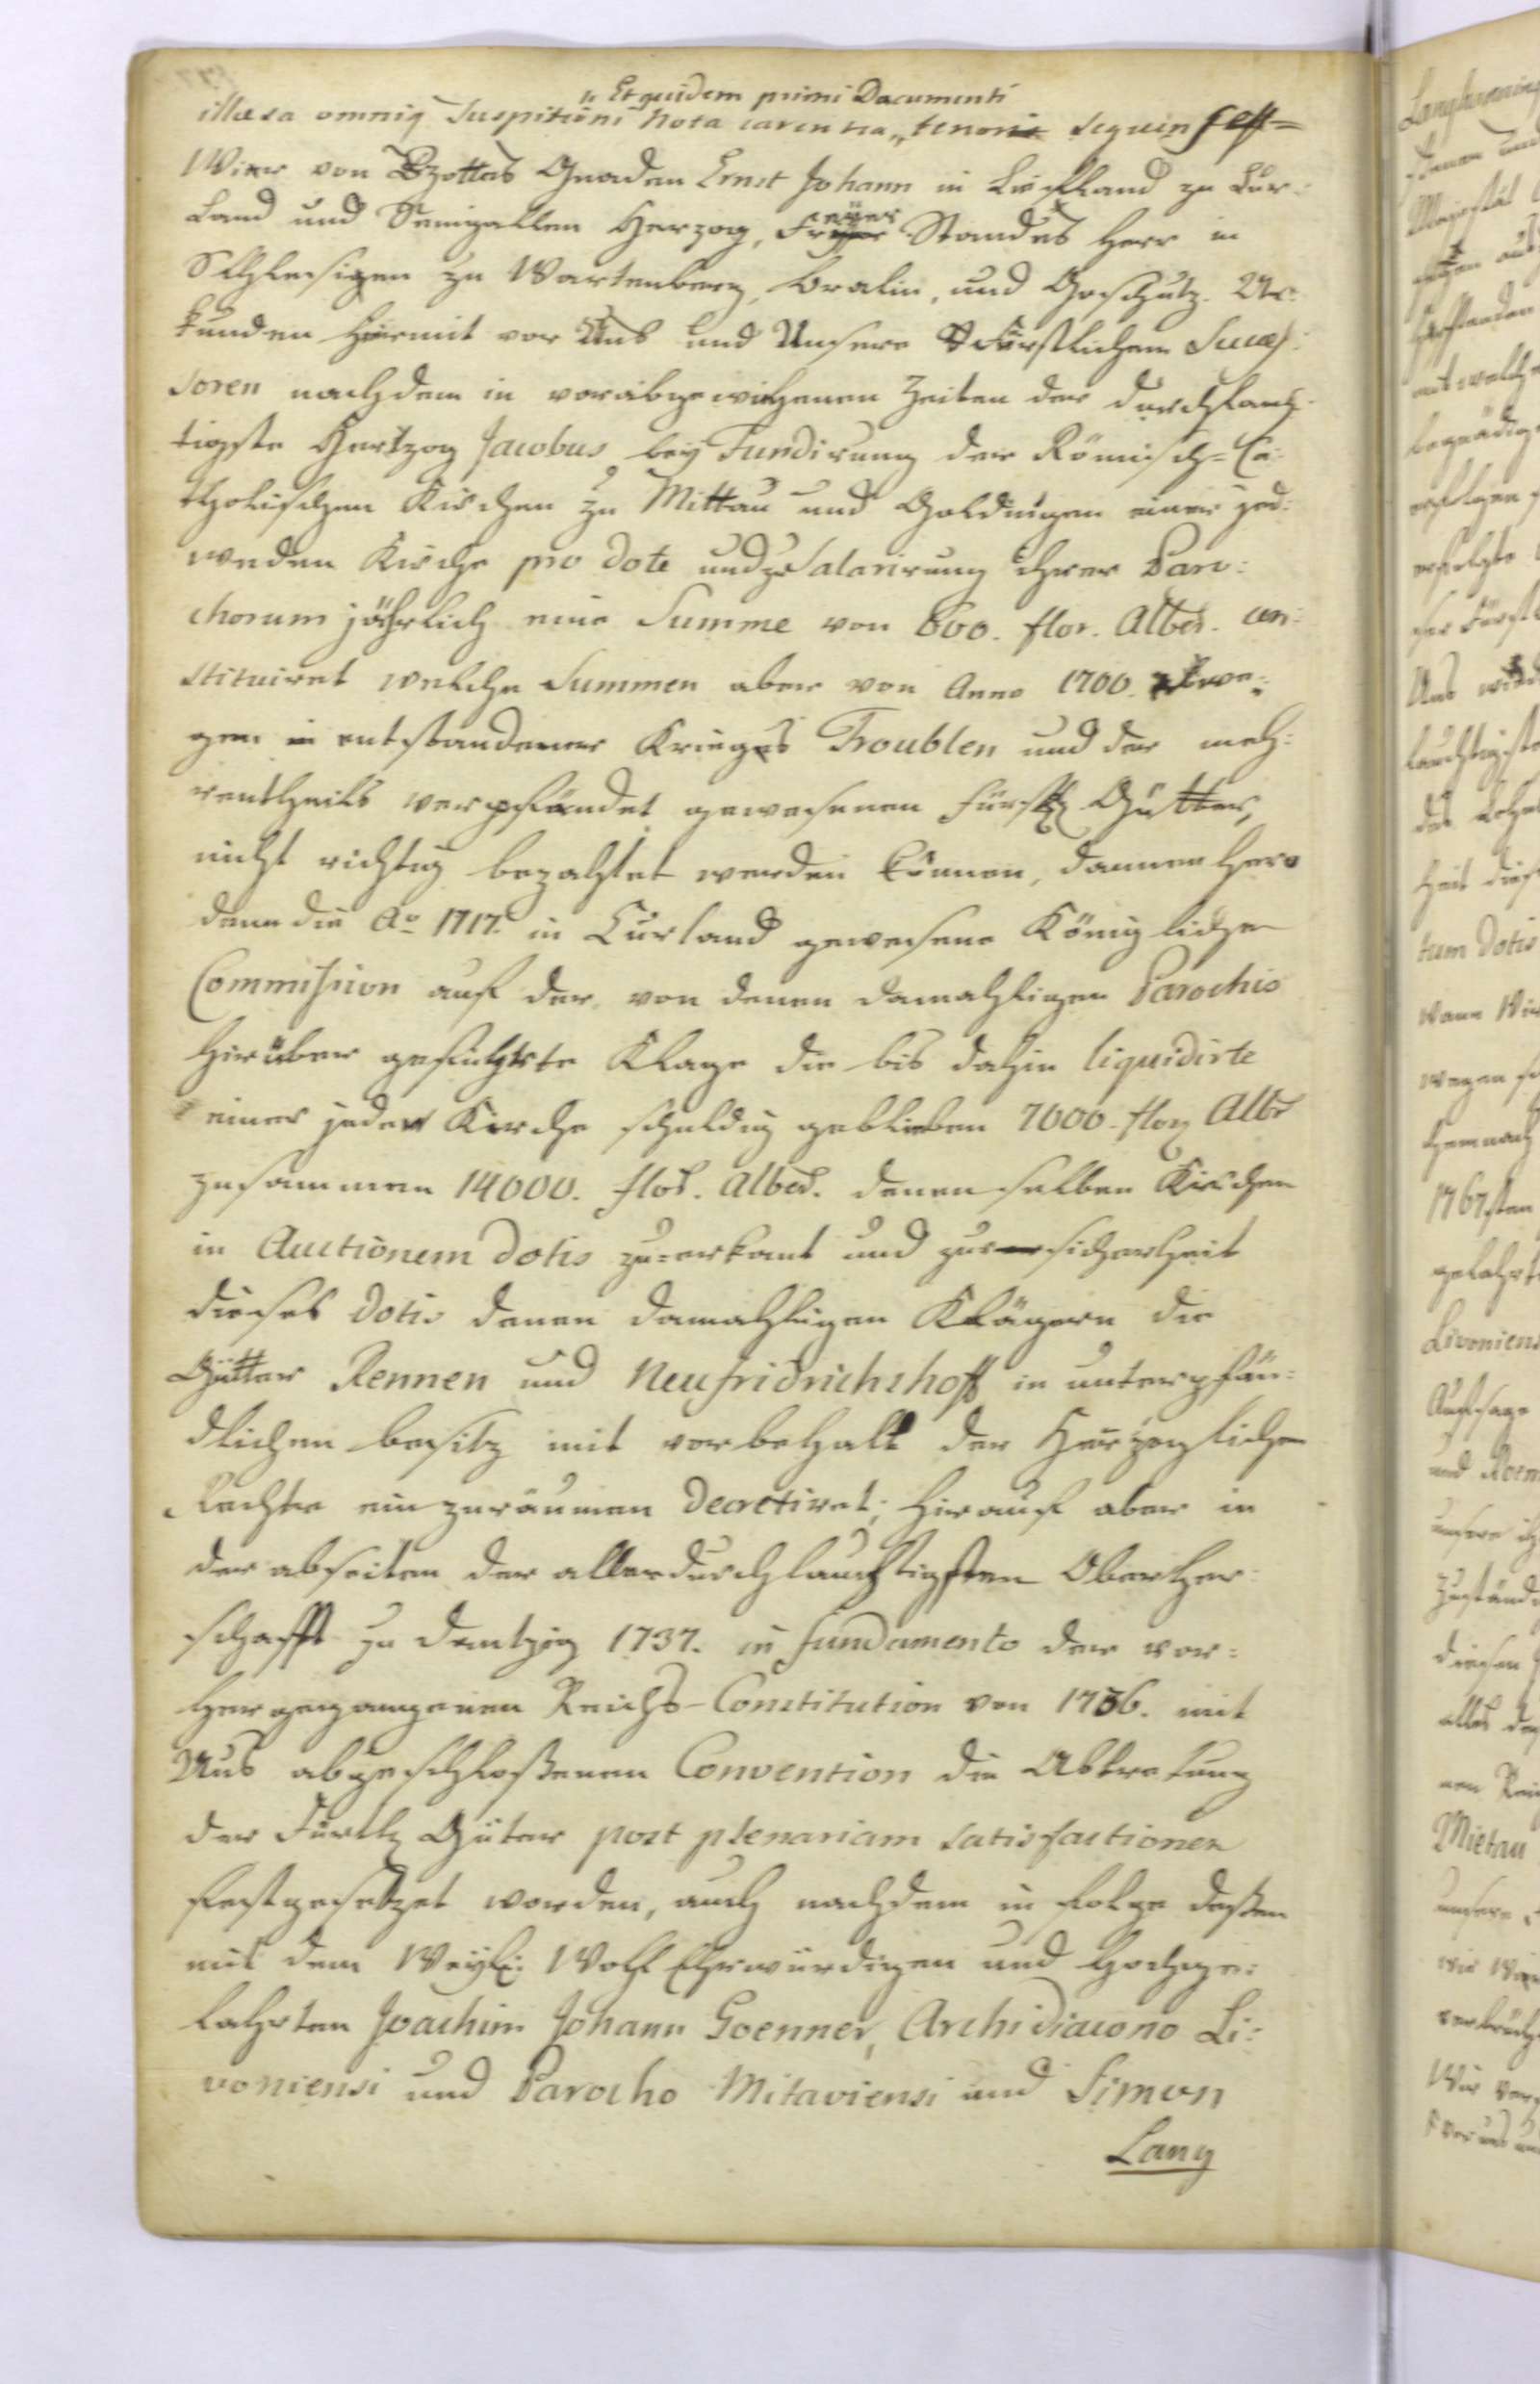 „ Et quidem primi Documenti
illaesa omniq Suspitioni Nota carentia „ tenor sequens est =
Wier von Gottes Gnaden Ernst Johann in Liefland zu Cur:
land und Semgallen Herzog, Freyer Standes Herr in
Schlesigen zu Wartenberg, Bralin, und Goschutz. Ur:
kunden hiermit vor Uns und Unsere Fürstlichen Succes:
soren nachdem in vorabgewichenen Zeiten der durchlauch:
tigste Hertzog Jacobus bey Fundirung der Römisch=Ca:
tholischen Kirchen zu Mittau und Goldingen einer jed:
weden Kirche pro dote und zu Salarirung ihrer Paro:
chorum jährlich eine Summe von 600. flor. Albes. con:
stituiret welche Summen aber von Anno 1700. we:
gen in entstandener Krieges Troublen und der meh:
rentheils verpfändet gewesenen fürstl Gütter,
nicht richtig bezahlet werden können, dannenhero
denn die Ao 1717. in Curland gewesene Königliche
Commission auf der von denen damahligen Parochis
hierüber geführte Klage die bis dahin liquidirte
einer jeder Kirche schuldig geblieben 7000. flor Albr
zusammen 14000. flor. Albes. denenselben Kirchen
in Auctionem dotis zu=erkant und zur sicherheit
dieses Dotis denen damahligen Klägern die
Gütter Rennen und Neufridrichshoff in unterpfän:
dlichen besitz mit vorbehalt der Herzoglichen
Rechte ein zuräumen decretiret; hierauf aber in
der abseiten der allerdurchlauchtigsten Oberher:
schafft zu Dantzig 1737. in fundamento der vor:
hergegangenen Reichs-Constitution von 1736. mit
Uns abgeschloßenen Convention die Abtretung
der Fürstl Güter post plenariam satisfactionem
festgesetzet worden, auch nachdem in folge deßen
mit dem Weyl: Wohl Ehrwürdigen und Hochge:
lahrten Joachim Johann Goenner, Archidiacono Li:
voniensi und Parocho Mitaviensi und Simon
Lang